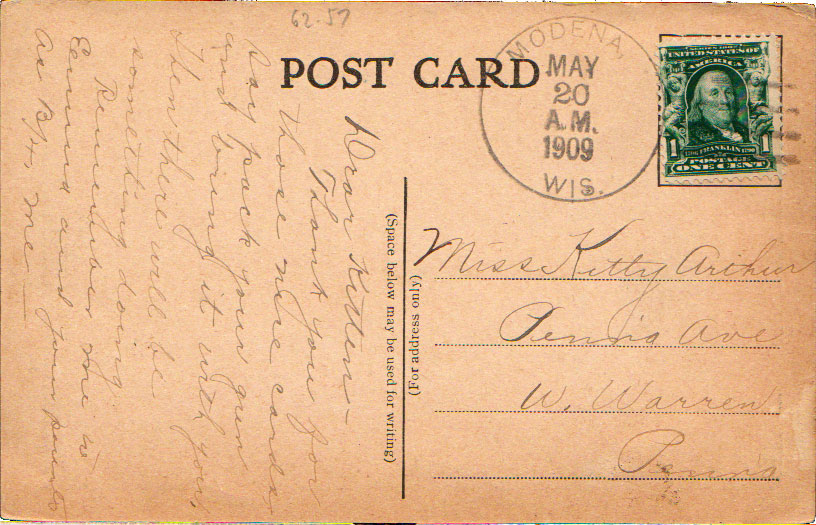 62-57
POST CARD
MODENA,
MAY
20
A.M.
1909
WIS.
SERIES 1902
UNITED STATES OF
AMERICA
1 1
FRANKLIN
POSTAGE
ONE CENT
Dear Kitten—
Thank you for
those nice cards.
Say pack your gun
and bring it with you,
Then there will be
something doing
Remember me to
Emma and your
As B/4, me—
(Space below may be used for writing)
(For address only)
Miss Kitty Arthur
Penn'a Ave
W. Warren
Penn'a